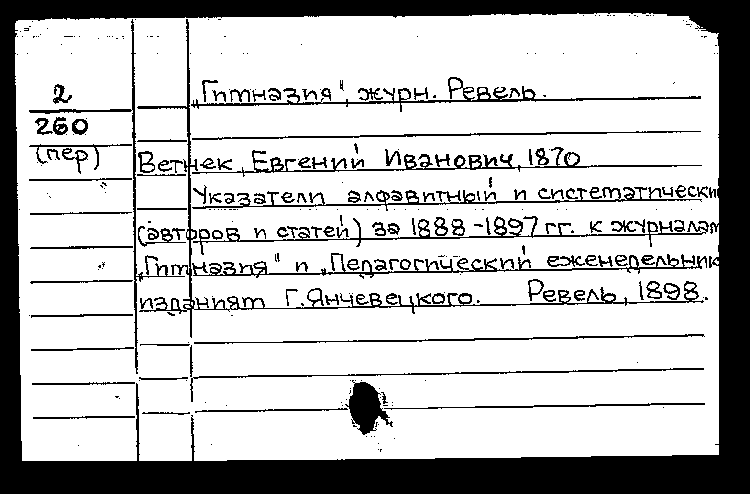 2
260
(пер)
„Гимназия", журн. Ревель.
Ветнек, Евгений Иванович, 1870
Указатели алфавитный и систематически
(авторов и статей) за 1888-1897 гг. к журналам
„Гимназия" и „Педагогический еженедельник
изданиям Г. Янчевецкого. Ревель, 1898.